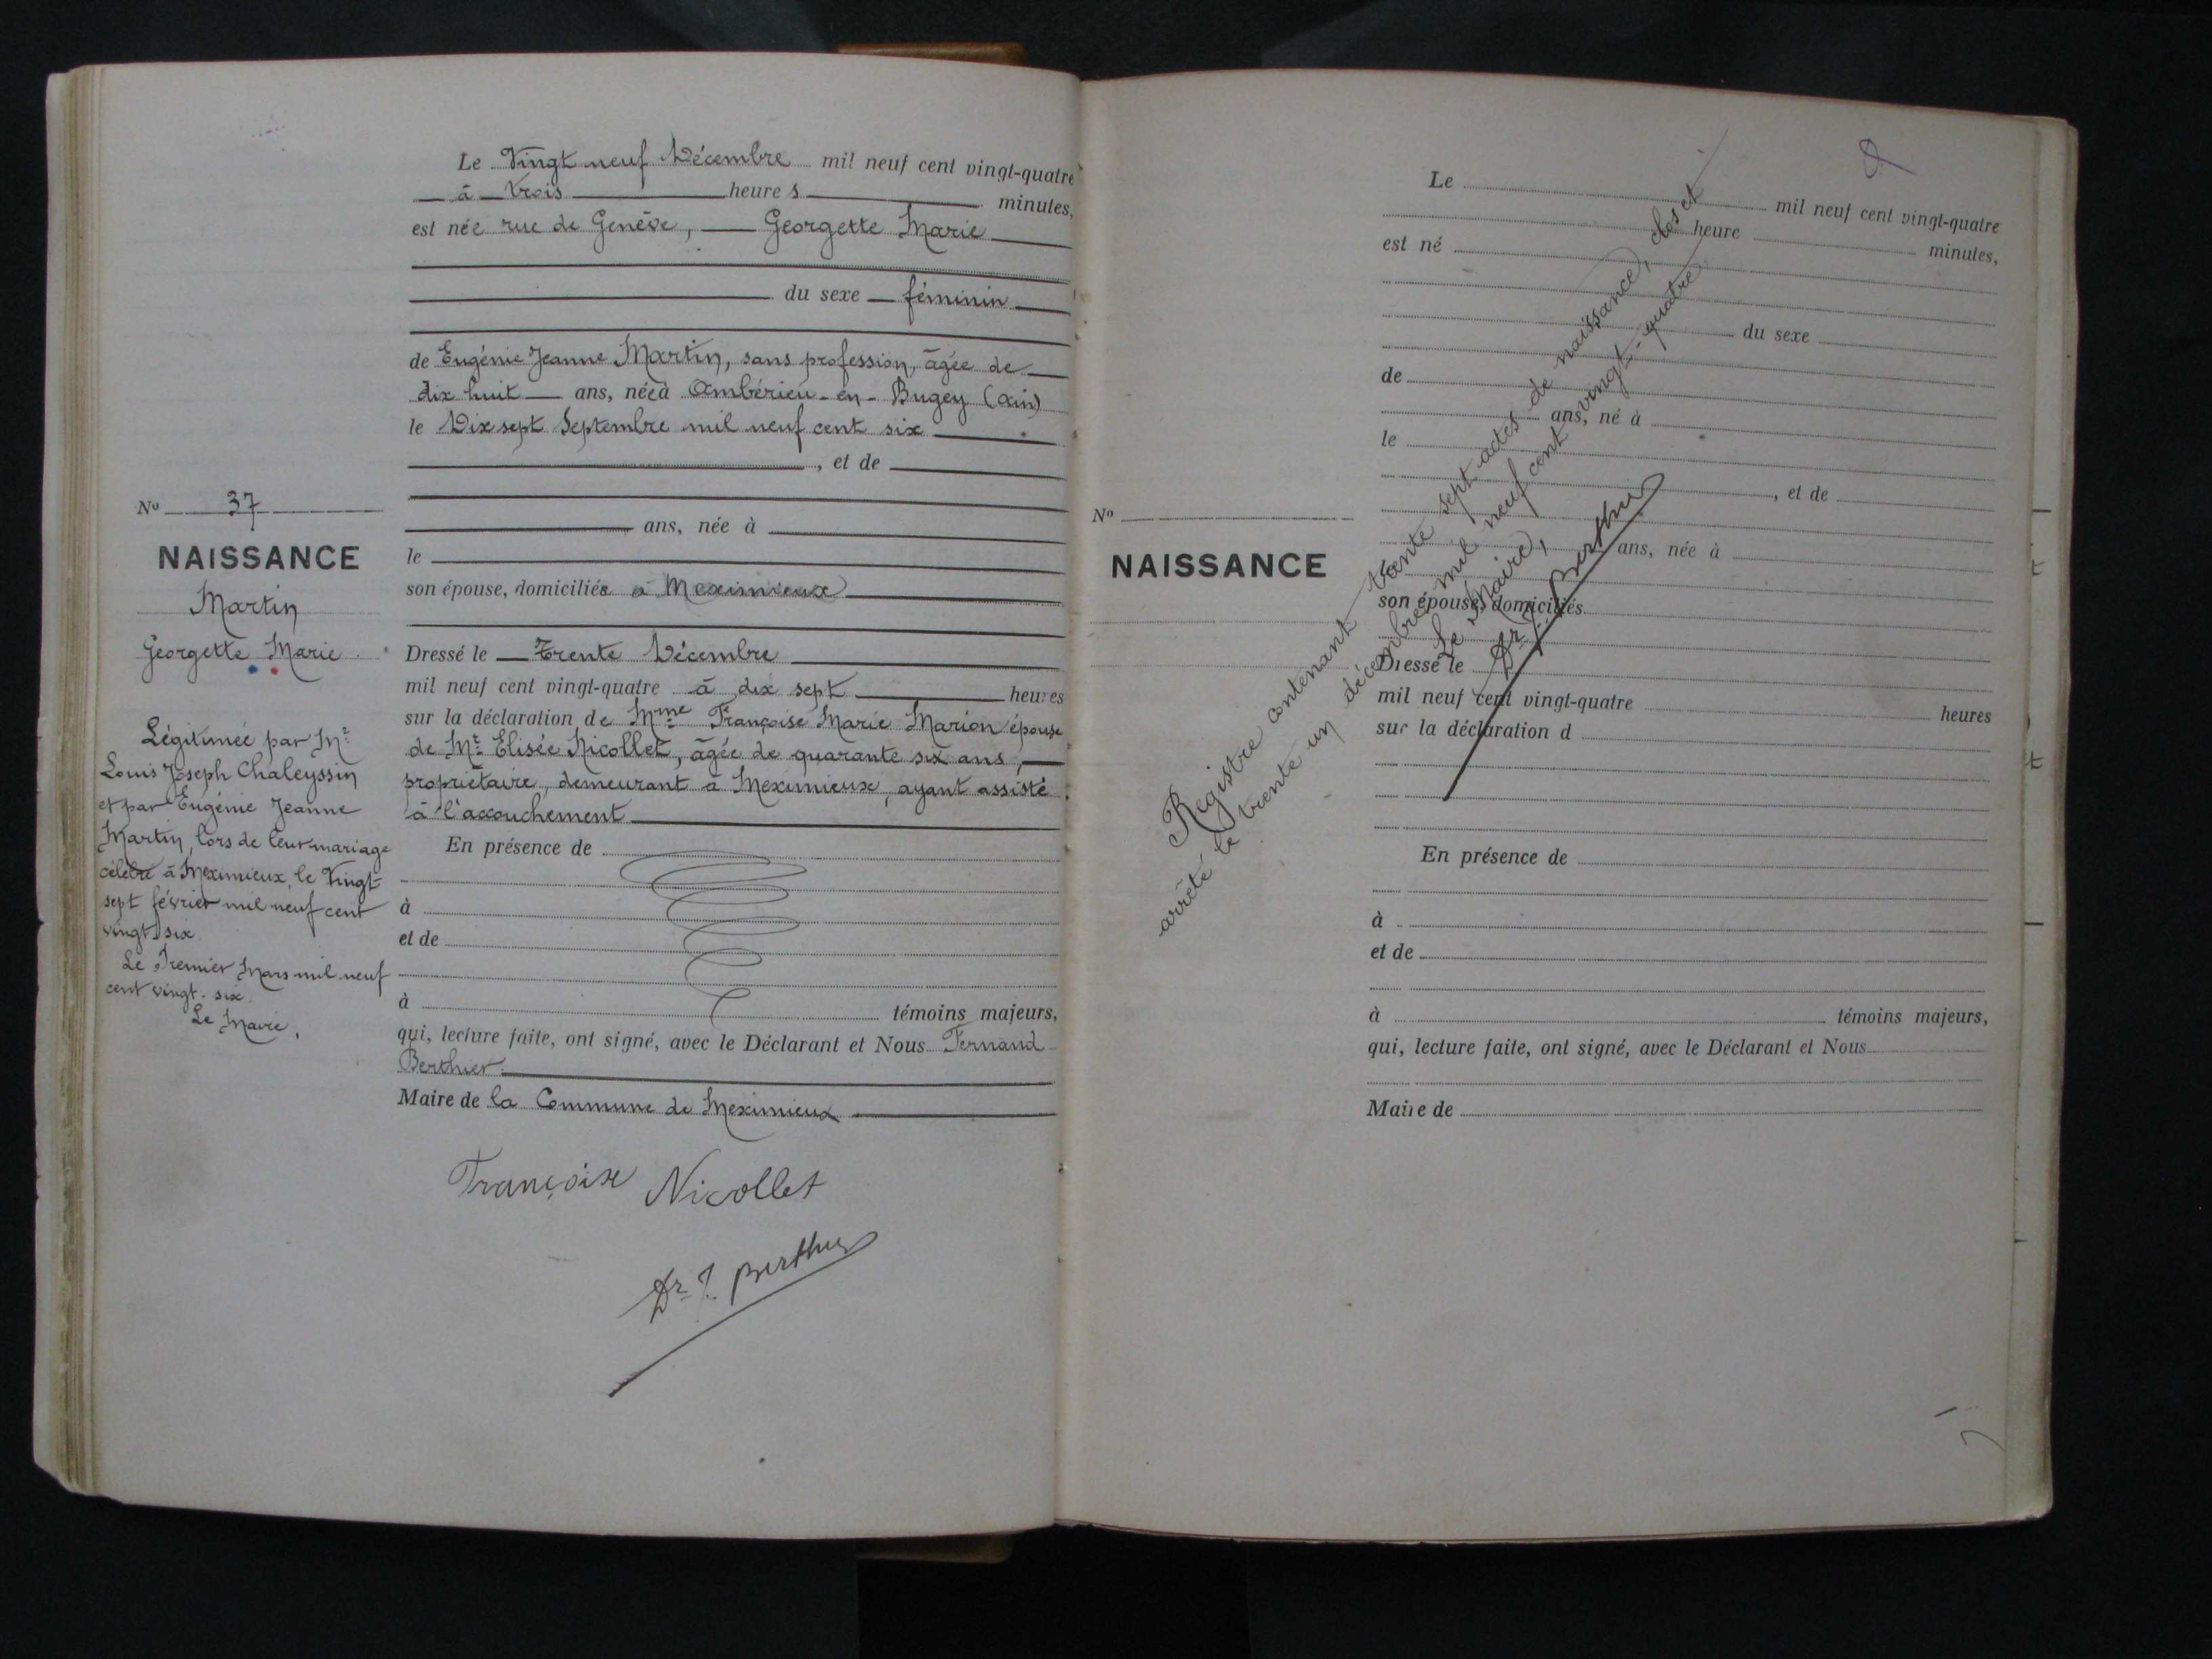 Le Vingt neuf Décembre mil neuf cent vingt-quatre
à trois heures minutes,
est née rue de Genève, Georgette Marie
du sexe féminin
de Eugénie Jeanne Martin, sans profession, âgée de
dix huit ans, née à Ambérieu-en-Bugey (Ain)
le Dix sept Septembre mil neuf cent six
, et de
ans, née à
le
son épouse, domiciliée à Meximieux
Dressé le Trente Décembre
mil neuf cent vingt-quatre à dix sept heures
sur la déclaration de Mme Françoise Marie Marion épouse
de Mr Elisée Nicollet, âgée de quarante six ans,
propriétaire, demeurant à Meximieux, ayant assisté
à l'accouchement
En présence de
à
et de
à témoins majeurs,
qui, lecture faite, ont signé, avec le Déclarant et Nous Fernand
Berthier
Maire de la Commune de Meximieux
Françoise Nicollet
Dr F. Berthier
No 37
NAISSANCE
Martin
Georgette Marie
Légitimée par Mr
Louis Joseph Chaleyssin
et par Eugénie Jeanne
Martin, lors de leur mariage
célébré à Meximieux, le Vingt
sept février mil neuf cent
vingt six.
Le Premier Mars mil neuf
cent vingt-six.
Le Maire,
Le mil neuf cent vingt-quatre
heure minutes,
est né
du sexe
de
ans, né à
le
, et de
ans, née à
son épouse, domiciliés
Dressé le
mil neuf cent vingt-quatre heures
sur la déclaration d
En présence de
à
et de
à témoins majeurs,
qui, lecture faite, ont signé, avec le Déclarant et Nous
Maire de
No
NAISSANCE
Registre contenant trente sept actes de naissance, clos et
arrêté le trente un décembre mil neuf cent vingt-quatre
Le Maire,
Dr F. Berthier